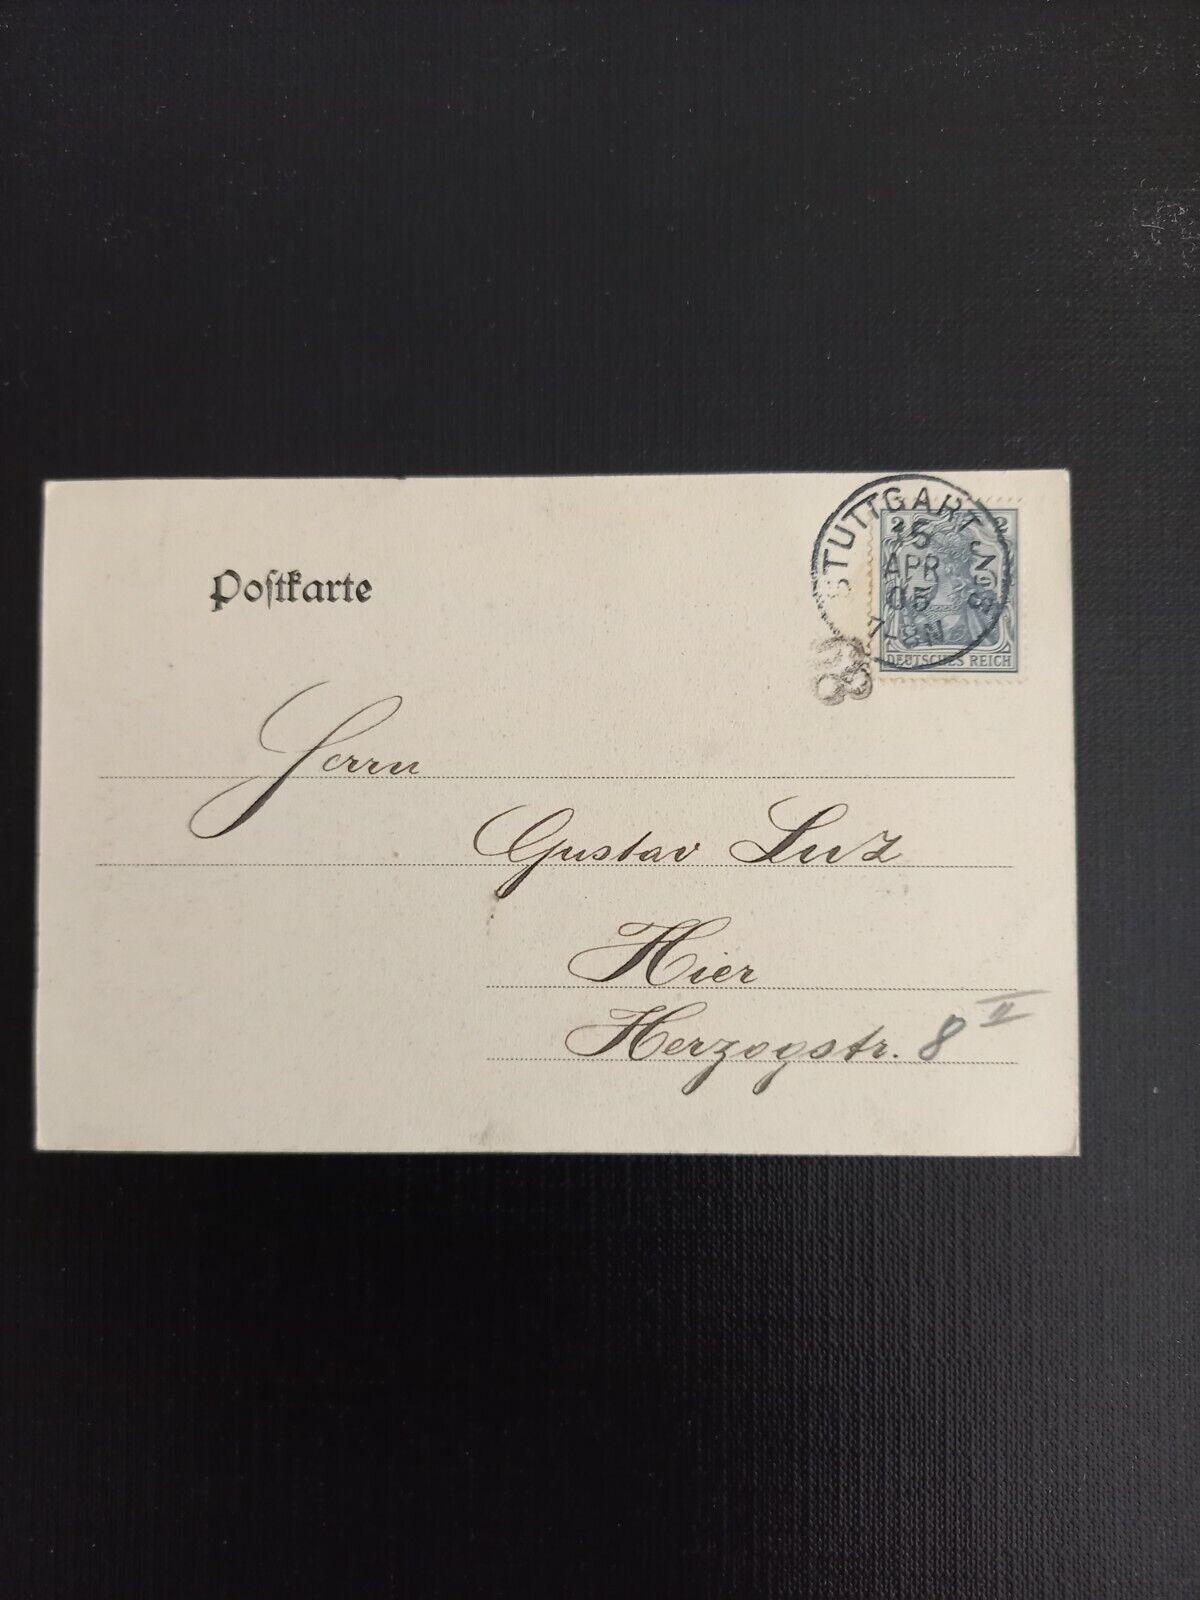 Postkarte
STUTTGART No 8
15
APR
05
7-8N
2 2
DEUTSCHES REICH
Herrn
Gustav Luz
Hier
Herzogstr. 8 II